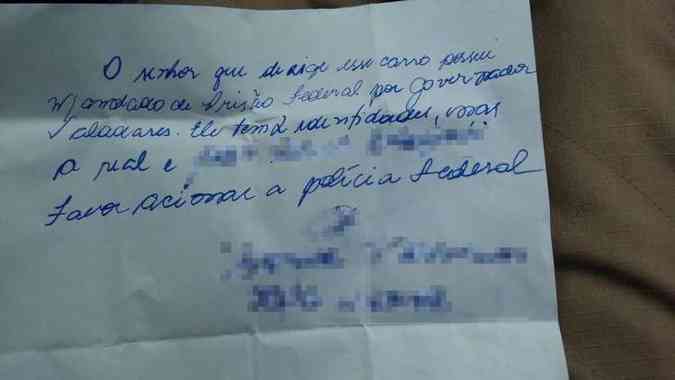 O senhor que dirige esse carro possui
Mandado de Prisão Federal por Governador
Valadares. Ele tem 2 identidades, mas
a real é
Favor acionar a polícia Federal